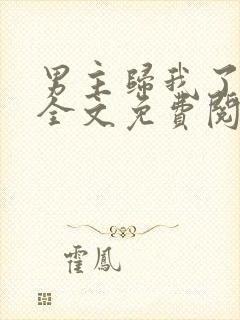 男主歸我了
全文免費閱
霍鳳